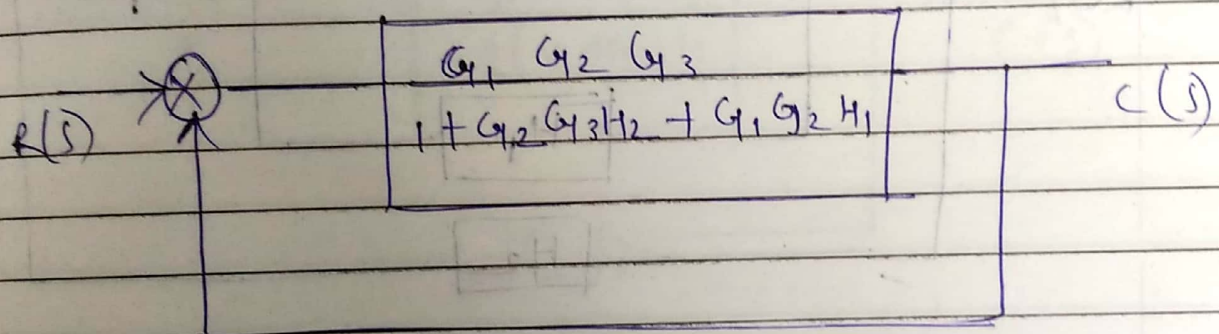 G1 G2 G3
1 + G2 G3 H2 + G1 G2 H1
R(S)
C(S)